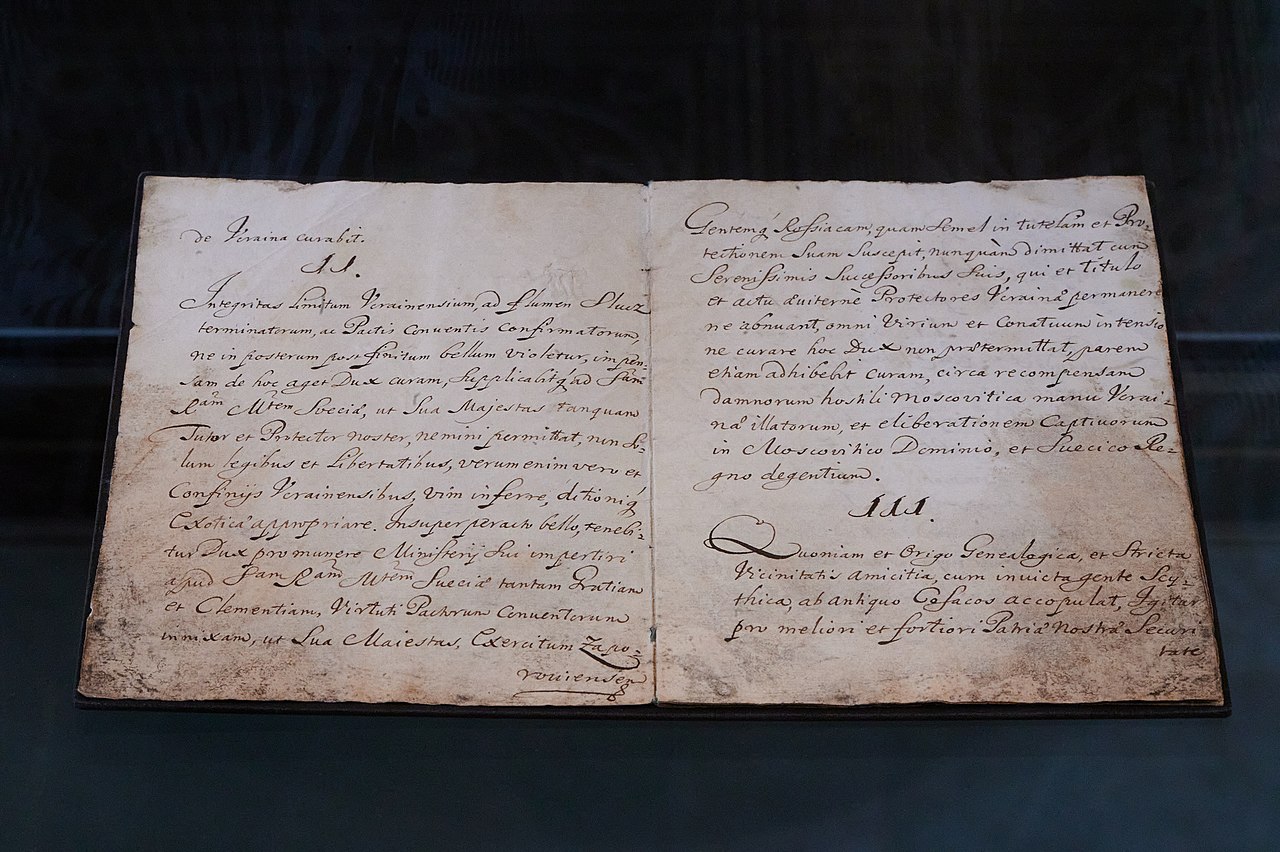 de Vcraina curabit.
II.
Integritas limitum Vcrainensium, ad flumen Slucz
terminatorum, ac Pactis Conventis Confirmatorum,
ne in posterum post finitum bellum violetur, impen=
sam de hoc aget Dux curam, supplicabitq́ ad Sam=
Ram Mtem Sveciæ, ut Sua Majestas tanquam
Tutor et Protector noster, nemini permittat, non So=
lum legibus et Libertatibus, verum enim vero et
Confinijs Vcrainensibus, vim inferre, ditioniq́
Exoticæ appropriare. Insuper peracto bello, tenebi=
tur Dux pro munere Ministerij sui impertiri
apud Sam Ram Mtem Sueciæ tantam Gratiam
et Clementiam, Virtuti Pactorum Conventorum
innixam, ut Sua Maiestas, Exercitum Zapo=
roviensem
Gentemq́ Rossiacam, quam semel in tutelam et Pro=
tectionem Suam Suscepit, nunquàm dimittat cum
Serenissimis Successoribus Suis, qui et titulo
et actu æuiterne Protectores Vcrainæ permanere
ne abnuant, omni Virium et Conatuum intensio
ne curare hoc Dux non prætermittat, parem
etiam adhibebit curam, circa recompensam
damnorum hostili Moscovitica manu Vcrai=
næ illatorum, et eliberationem Captivorum
in Moscovitico Dominio, et Suecico Re=
gno degentium.
III.
Quoniam et Origo Genealogica, et Stricta
Vicinitatis amicitia, cum invicta gente Scy=
thica, ab antiquo Cosacos accopulat, Igitur
pro meliori et fortiori Patriæ Nostræ Securi
tate